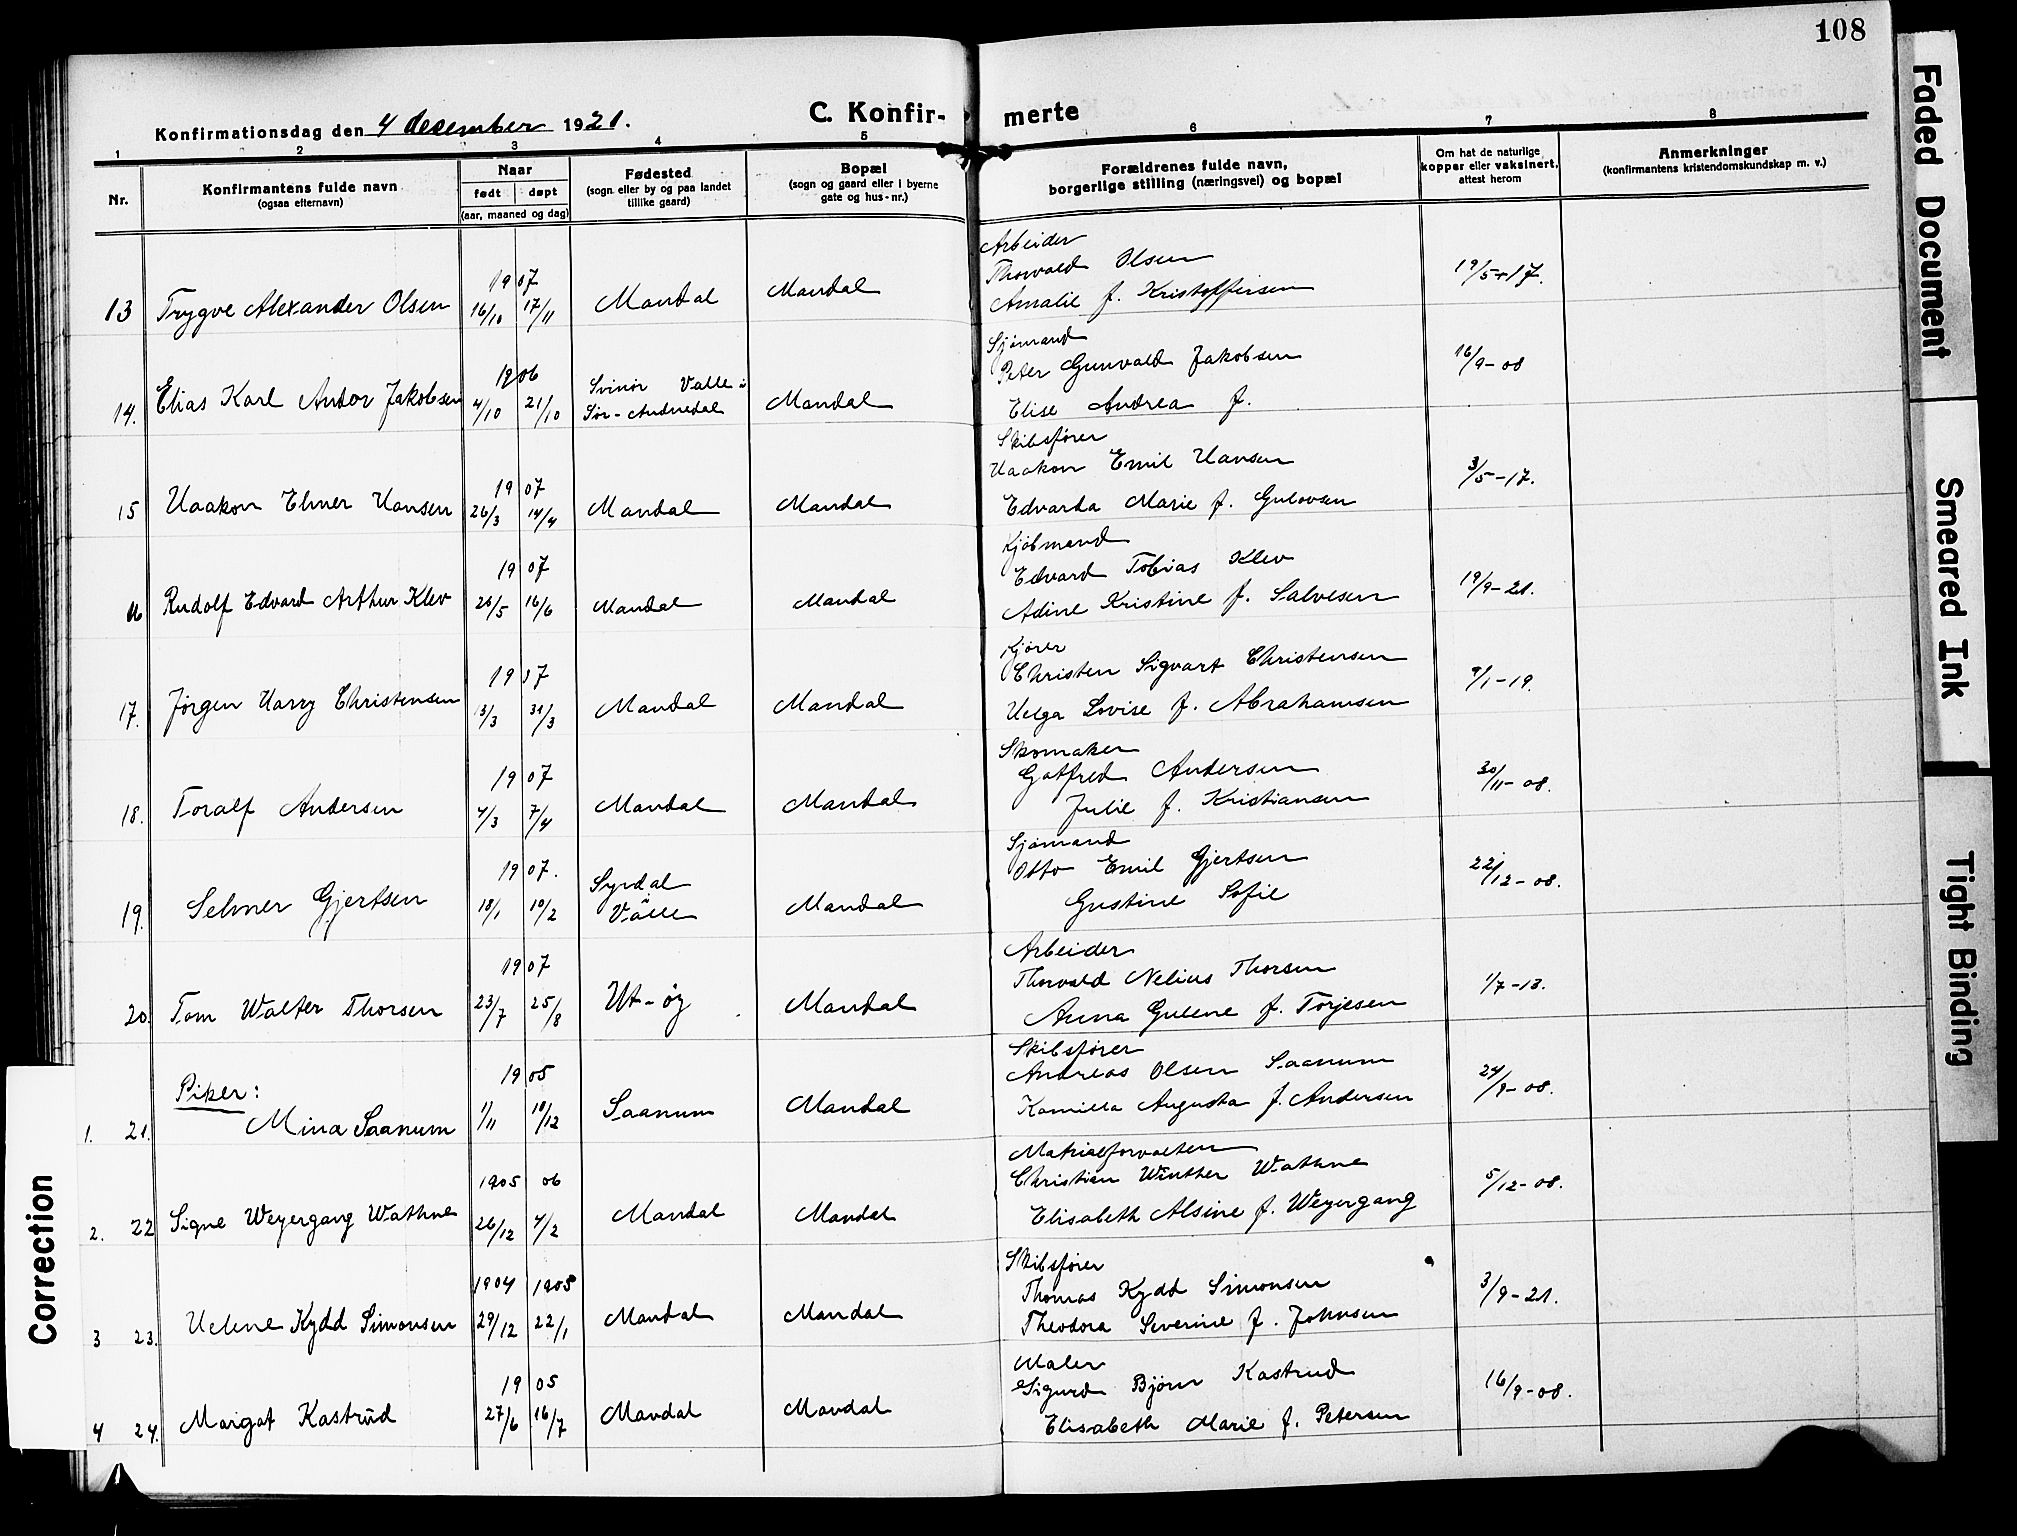 108
Konfirmationsdag den 4 desember 1921.
C. Konfir-merte
1 2 3 4 5 6 7 8
Nr.
Konfirmantens fulde navn
(ogsaa efternavn)
Naar
født døpt
(aar, maaned og dag)
Fødested
(sogn eller by og paa landet
tillike gaard)
Bopæl
(sogn og gaard eller i byerne
gate og hus-nr.)
Forældrenes fulde navn,
borgerlige stilling (næringsvei) og bopæl
Om hat de naturlige
kopper eller vaksinert,
attest herom
Anmerkninger
(konfirmantens kristendomskundskap m. v.)
Arbeider
1907 Thorvald Olsen
13 Trygve Alexander Olsen 16/10 17/11 Mandal Mandal Amalie f. Kristoffersen 19/5-17.
Sjømand
1906 Svinør Valle i Peter Gunvald Jakobsen
14. Elias Karl Andor Jakobsen 4/10 21/10 Sør-Audnedal Mandal Elise Andrea f. 16/9-08
Skibsfører
1907 Haakon Emil Hansen
15 Haakon Elmer Hansen 26/3 14/4 Mandal Mandal Edvarda Marie f. Gulovsen 3/5-17.
Kjøbmand
1907 Edvard Tobias Klev
16 Rudolf Edvard Arthur Klev /5 16/6 Mandal Mandal Adine Kristine f. Salvesen 19/9-21.
Kjører
1907 Christen Sigvart Christensen
17. Jørgen Harry Christensen 13/3 31/3 Mandal Mandal Helga Lovise f. Abrahamsen 9/1-19.
Skomaker
1907 Gotfred Andersen
18. Toralf Andersen 4/3 7/4 Mandal Mandal Julie f. Kristiansen 30/11-08.
Sjømand
1907. Syrdal Otto Emil Gjertsen
19. Selmer Gjertsen 18/1 10/2 Valle Mandal Gustine Sofie 22/12-08.
Arbeider
1907 Thorvald Nelius Thorsen
20. Tom Walter Thorsen 23/7 25/8 Ut-øy Mandal Anna Gulene f. Torjesen 1/7-13.
Skibsfører
Piker: 1905 Andreas Olsen Saanum
1. 21. Mina Saanum 1/11 10/12 Saanum Mandal Kamilla Augusta f. Andersen 24/9-08.
1905 06 Christian Winther Wathne
2. 22 Signe Weyergang Wathne 26/12 4/2 Mandal Mandal Elisabeth Alsine f. Weyergang 5/12-08.
Skibsfører
1904 1905 Thomas Kydd Simonsen
3 23. Helene Kydd Simonsen 29/12 22/1 Mandal Mandal Theodora Severine f. Johnsen 3/9-21.
Maler
1905 Sigurd Bjørn Kastrud
4 24. Margot Kastrud 27/6 16/7 Mandal Mandal Elisabeth Marie f. Petersen 16/9-08.
Correction
Faded Document
Smeared Ink
Tight Binding